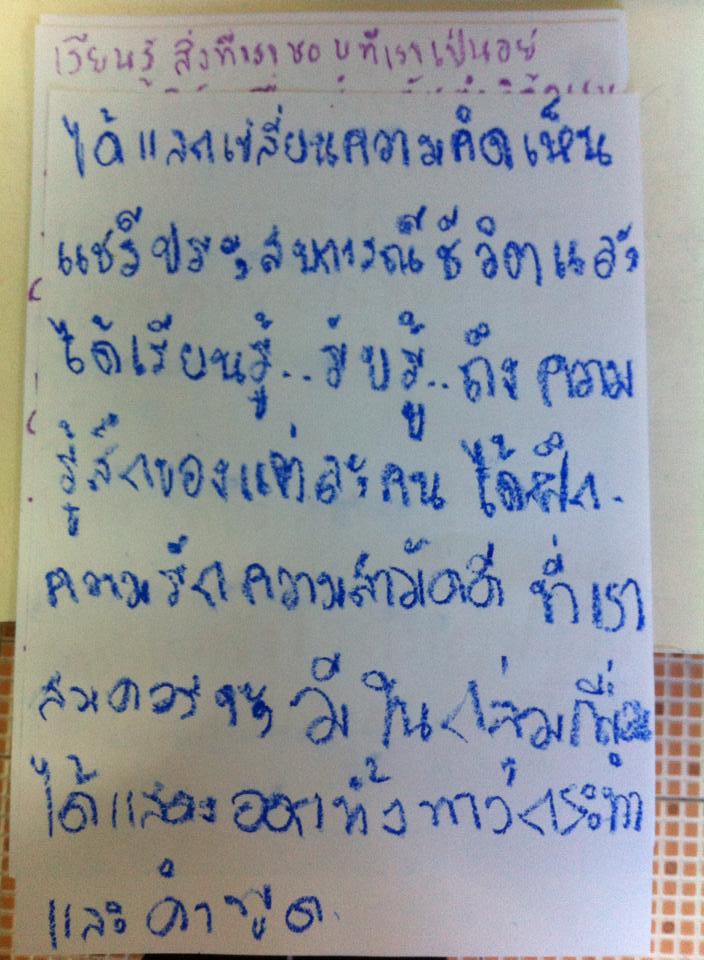 เรียนรู้ สิ่งที่เราชอบที่เราเป็นอยู่
ได้แลกเปลี่ยนความคิดเห็น
แชร์ประสบการณ์ชีวิตและ
ได้เรียนรู้..รับรู้..ถึงความ
รู้สึกของแต่ละคน ได้ฝึก
ความรักความสามัคคี ที่เรา
สมควรจะ มีในกลุ่มเพื่อน
ได้แสดงออกทั้งการกระทำ
และคำพูด